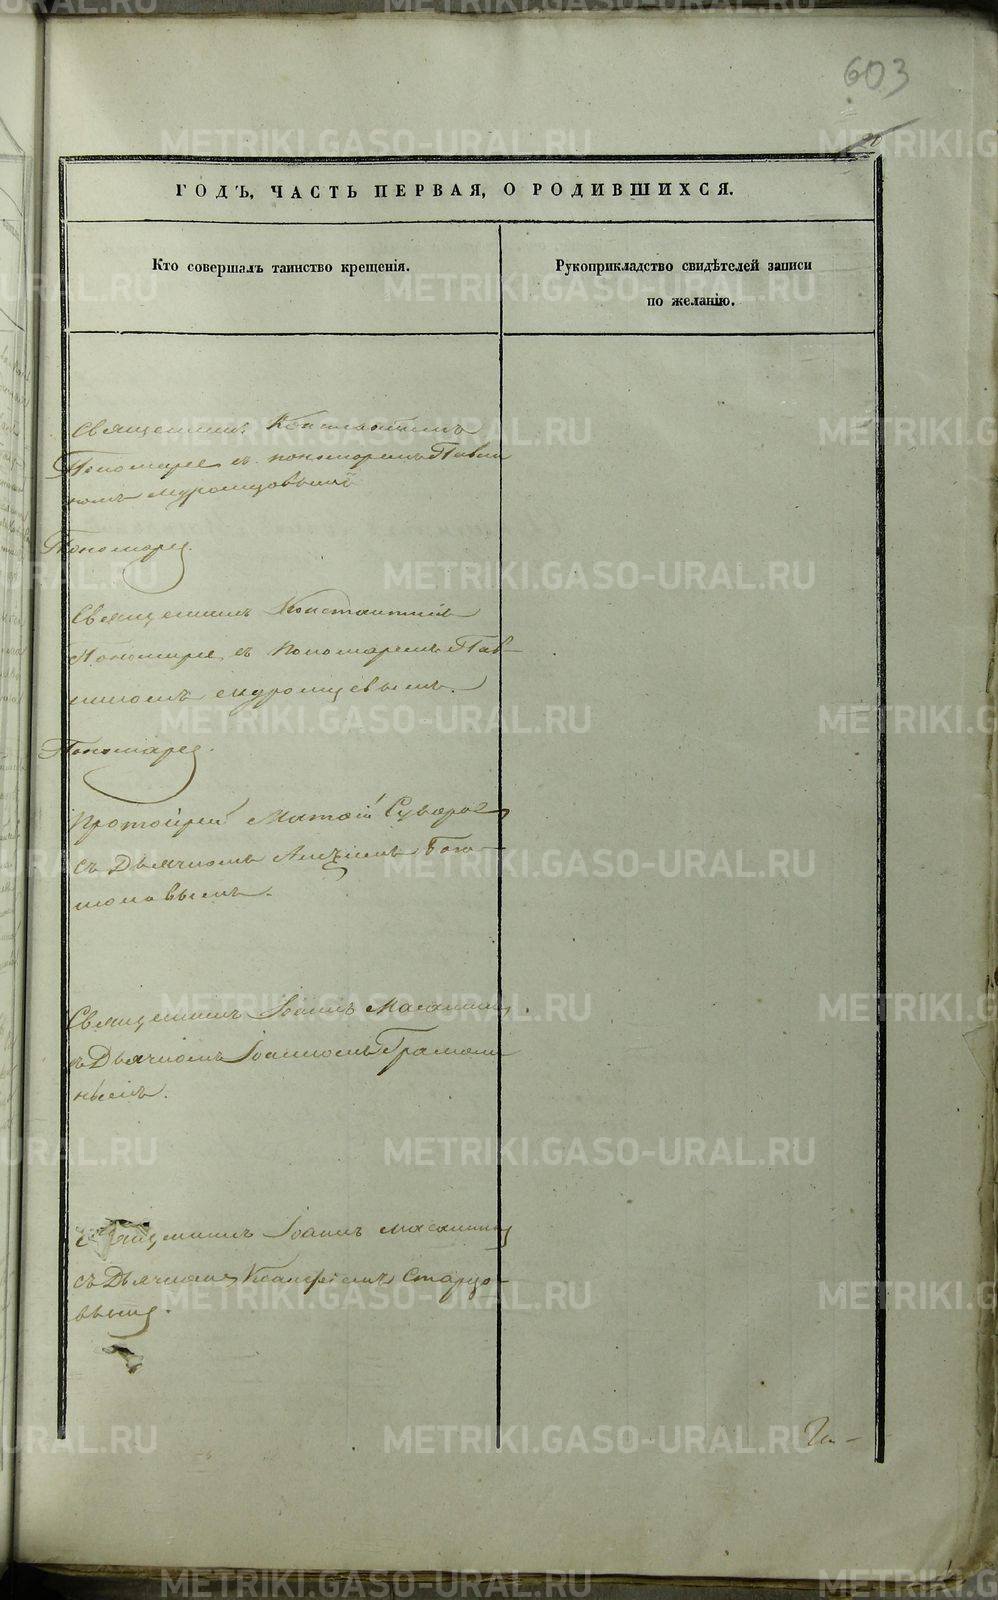 603
ГОДЪ, ЧАСТЬ ПЕРВАЯ, О РОДИВШИХСЯ.
Кто совершалъ таинство крещенія.
Рукоприкладство свидѣтелей записи
по желанію.
Священникъ Константинъ
Пономарев съ пономаремъ Павли
номъ Муромцовымъ
Пономарев.
Священникъ Константинъ
Пономарев съ Пономаремъ Пав-
линомъ Муромцевымъ.
Пономарев.
Протоіерей Матѳій Суворов
съ Дьячкомъ Алексіемъ
Священникъ Іоаннъ
съ Дьячкомъ Іоанномъ Грамоли
нымъ.
Священникъ Іоаннъ
съ Дьячкомъ Ксанфіемъ Старцо-
вымъ.
METRIKI.GASO-URAL.RU